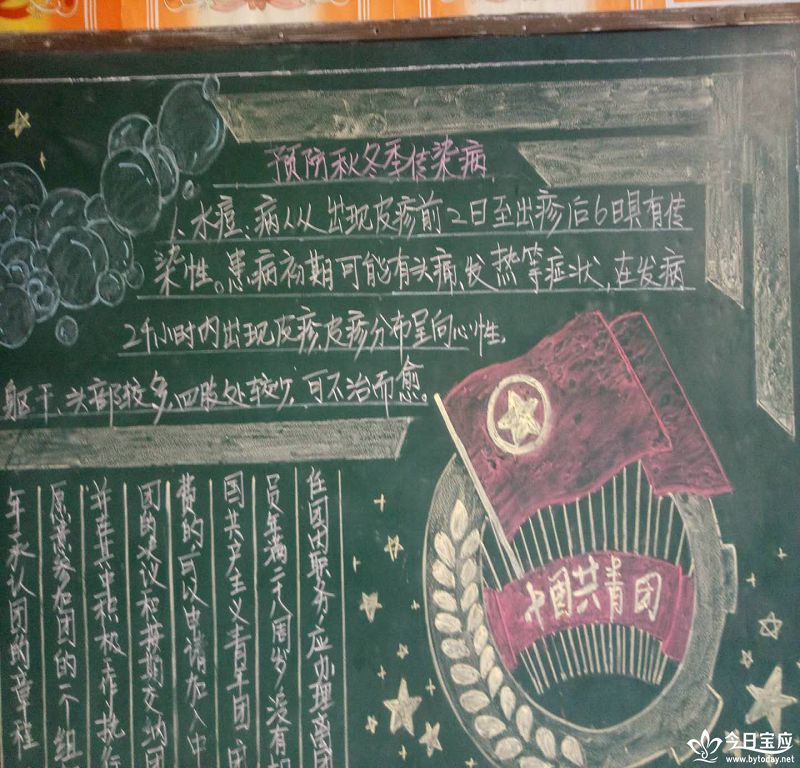 预防秋冬季传染病
、水痘、病人从出现皮疹前2日至出疹后6日具有传
染性。患病初期可能有头痛,发热等症状,在发病
24小时内出现皮疹,皮疹分布呈向心性,
躯干、头部较多,四肢处较少,可不治而愈。
任团内职务,应办理离团
员年满二十八周岁,没有
国共产主义青年团团
费的,可以申请加入中
团的决议和按期交纳团
并在其中积极工作、执行
愿意参加团的一个组
年承认团的章程
中国共青团
今日宝应
www.bytoday.net